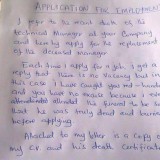 APPLICATION FOR EMPLOYMENT
I refer to the recent death of the
technical Manager at your company
and hereby apply for the replacement
of the deceased manager.
Each time I apply for a job, I get a
reply that there is no vacancy but in
this case I have caught you red handed
and you have no excuse because I even
attended the funeral to be sure
that he was truly dead and buried
before applying.
Attached to my letter is a copy of
my CV and his death certificate